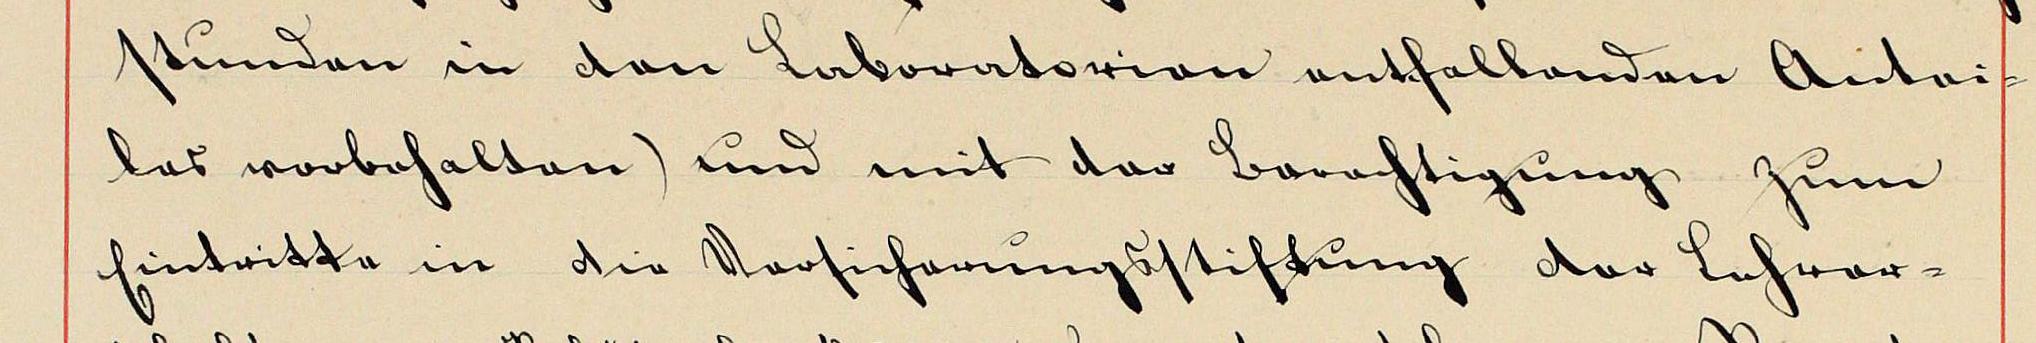 stunden in den Laboratorien entfallenden Antei-
les vorbehalten) und mit der Berechtigung zum
Eintritte in die Versicherungsstiftung der Lehrer-